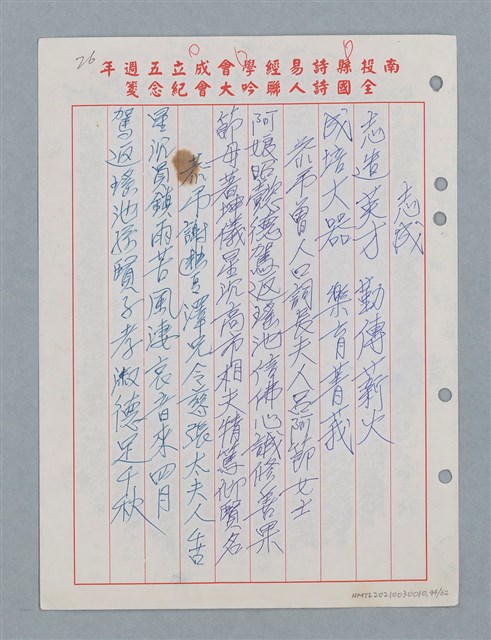 南投縣詩易經學會成立五週年
全國詩人聯吟大會紀念箋
26
志成
志造英才 勤傳薪火
成培大器 樂育菁莪
恭弔曾人口詞長夫人呂阿節女士
阿娘昭懿德駕返瑤池信佛心誠修善果
節母著坤儀星沉高市相夫情篤仰賢名
恭弔謝 澤兄令慈張太夫人千古
星沉員鎮雨苦風淒哀音來四月
駕返瑤池孫賢子孝淑德足千秋
NMTL20210030010,44/62